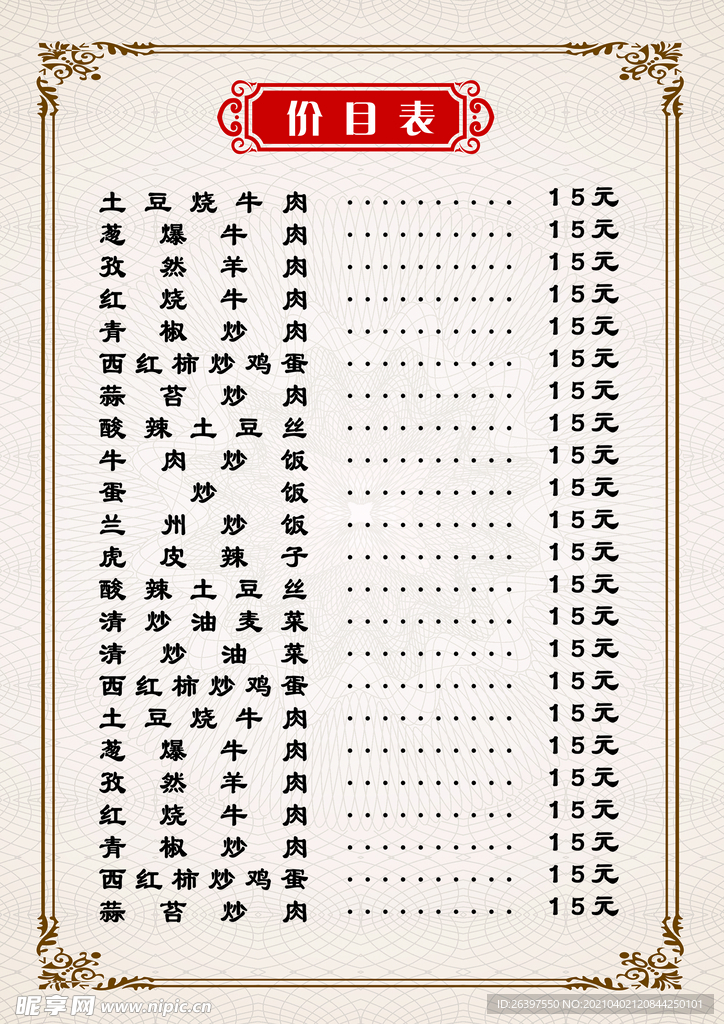 价目表
土豆烧牛肉 .......... 15元
葱爆牛肉 .......... 15元
孜然羊肉 .......... 15元
红烧牛肉 .......... 15元
青椒炒肉 .......... 15元
西红柿炒鸡蛋 .......... 15元
蒜苔炒肉 .......... 15元
酸辣土豆丝 .......... 15元
牛肉炒饭 .......... 15元
蛋炒饭 .......... 15元
兰州炒饭 .......... 15元
虎皮辣子 .......... 15元
酸辣土豆丝 .......... 15元
清炒油麦菜 .......... 15元
清炒油菜 .......... 15元
西红柿炒鸡蛋 .......... 15元
土豆烧牛肉 .......... 15元
葱爆牛肉 .......... 15元
孜然羊肉 .......... 15元
红烧牛肉 .......... 15元
青椒炒肉 .......... 15元
西红柿炒鸡蛋 .......... 15元
蒜苔炒肉 .......... 15元
昵享网 www.nipic.cn
ID:26397550 NO:20210402120844250101